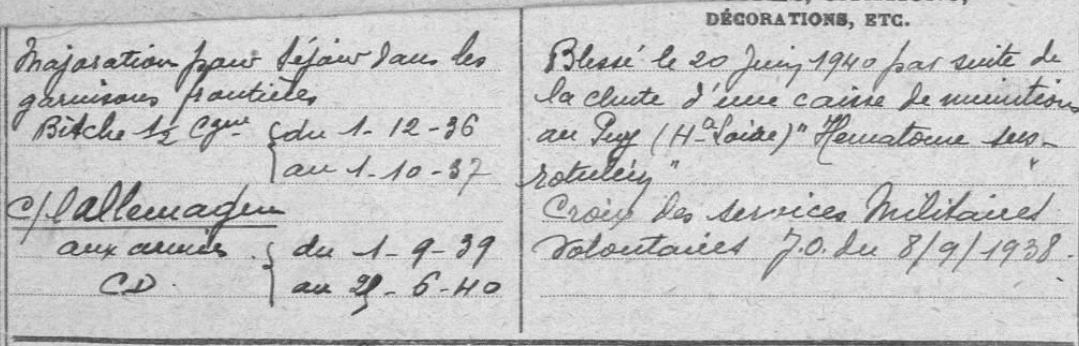 DÉCORATIONS, ETC.
Majoration pour séjour dans les
garnisons frontières
Bitche 1/2 Cgne du 1-12-36
au 1-10-37
c/l'allemagne
aux armées du 1-9-39
CD. au 25-6-40
Blessé le 20 Juin 1940 par suite de
la chute d'une caisse de munitions
au Puy (Hte Loire) "Hematome sus-
rotulien"
Croix des services Militaires
Volontaires J.O. du 8/9/1938.